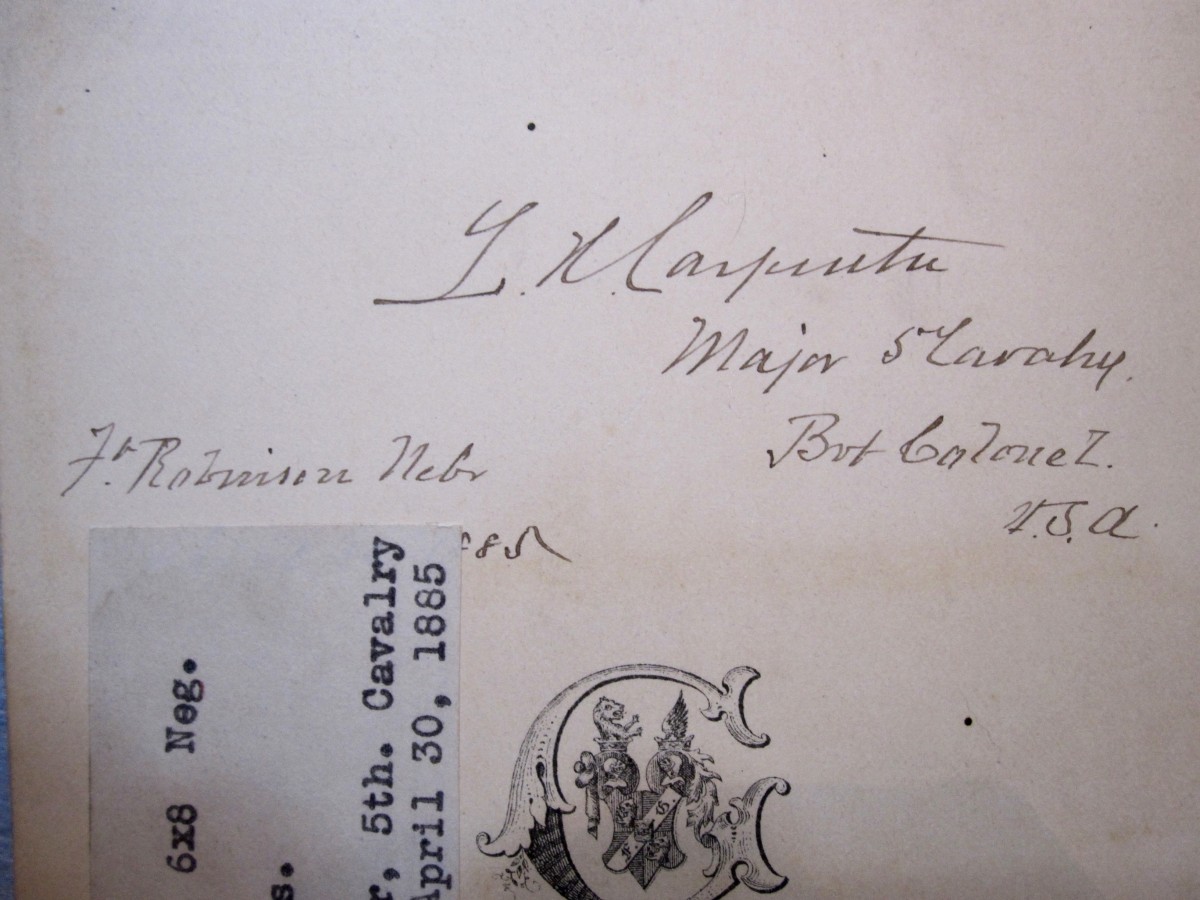 L. H. Carpenter
Major 5 Cavalry.
Bvt Colonel.
U.S.A.
Ft. Robinson Nebr
885
6x8 Neg.
s.
r, 5th. Cavalry
April 30, 1885